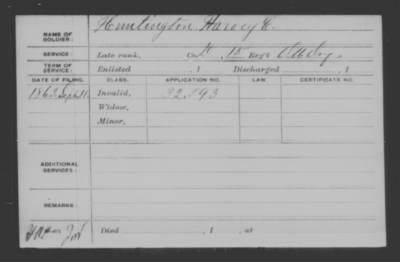 NAME OF SOLDIER: Huntington, Harvey E.
SERVICE: Late rank, Co. H, 18 Reg't U.S. Inf.
TERM OF SERVICE: Enlisted , 1 Discharged , 1
DATE OF FILING. CLASS. APPLICATION NO. LAW. CERTIFICATE NO.
1863 Sept. Invalid, 32,193
Widow,
Minor,
ADDITIONAL SERVICES:
REMARKS:
Died , 1 , at